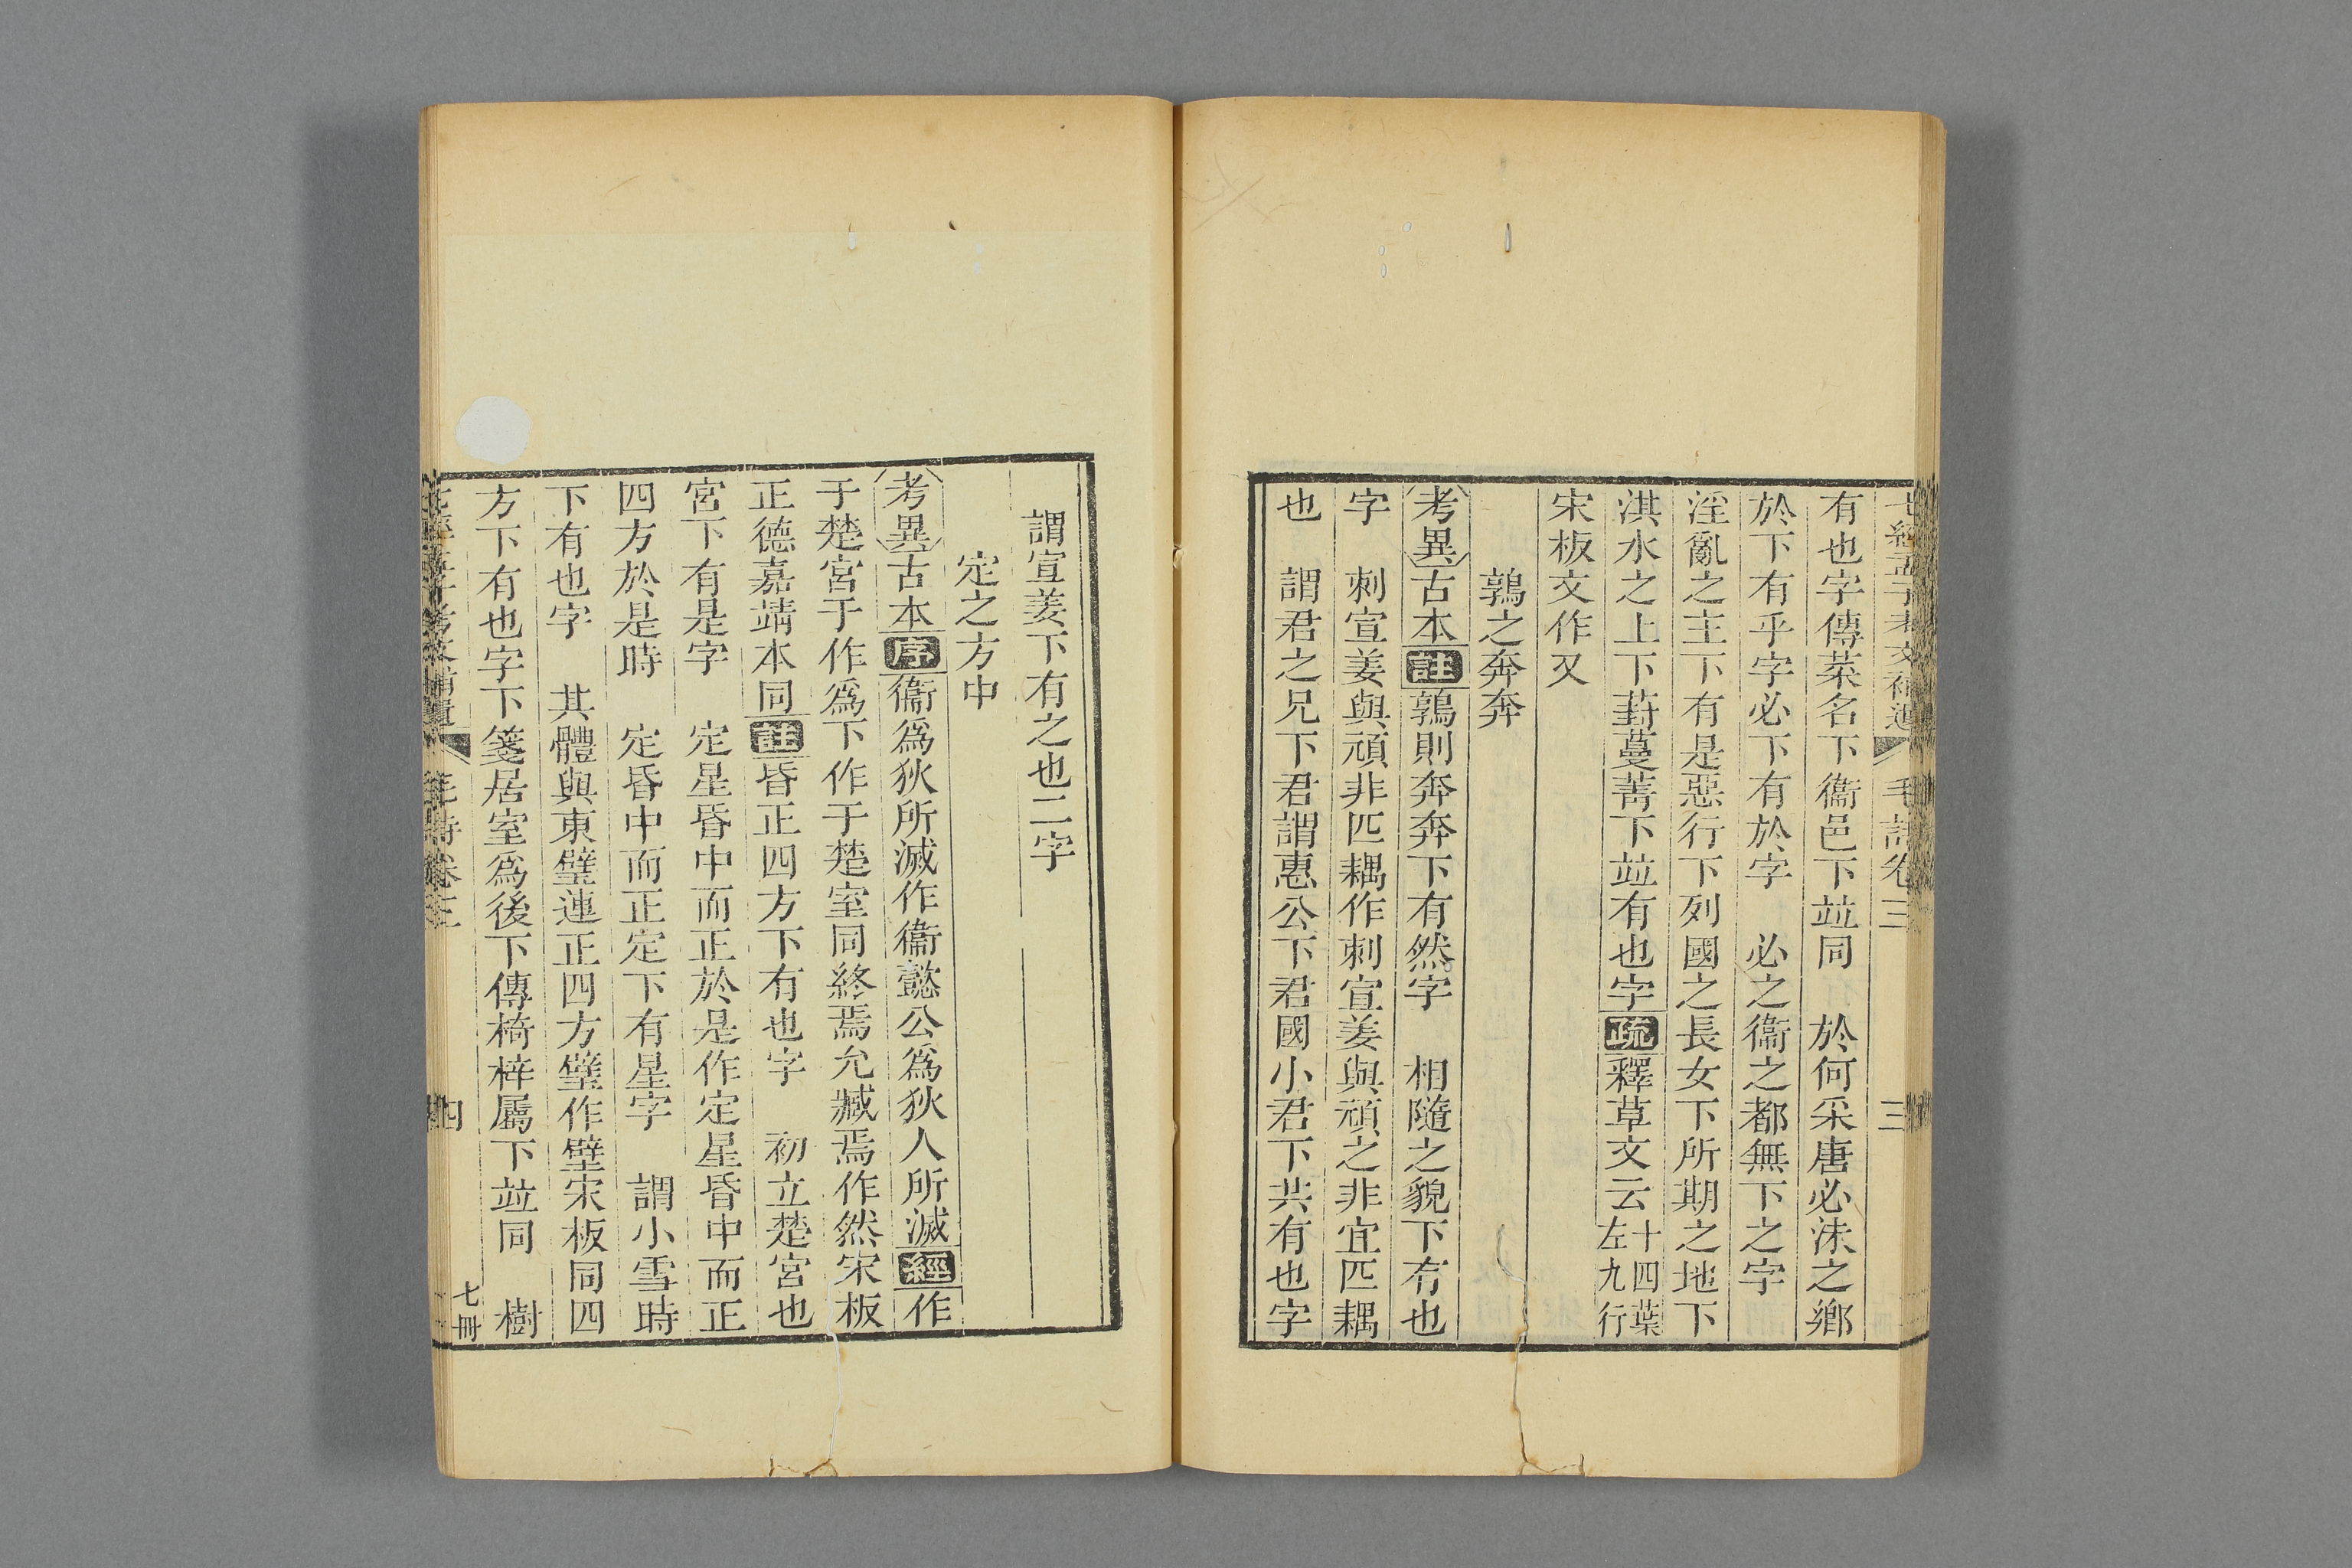 七經孟子考文補遺 毛詩卷三 三
有也字傳菜名下衞邑下竝同 於何采唐必沬之鄉
於下有乎字必下有於字 必之衞之都無下之字
淫亂之主下有是惡行下列國之長女下所期之地下
淇水之上下葑蔓菁下竝有也字疏釋草文云十四葉左九行
宋板文作又
鶉之奔奔
考異古本註鶉則奔奔下有然字 相隨之貌下有也
字 刺宣姜與頑非匹耦作刺宣姜與頑之非宜匹耦
也 謂君之兄下君謂惠公下君國小君下共有也字
謂宣姜下有之也二字
定之方中
考異古本序衞爲狄所滅作衞懿公爲狄人所滅經作
于楚宮于作爲下作于楚室同終焉允臧焉作然宋板
正德嘉靖本同註昏正四方下有也字 初立楚宮也
宮下有是字 定星昏中而正於是作定星昏中而正
四方於是時 定昏中而正定下有星字 謂小雪時
下有也字 其體與東壁連正四方壁作壁宋板同四
方下有也字下箋居室爲後下傳椅梓屬下竝同 樹
毛詩卷三 四 七冊